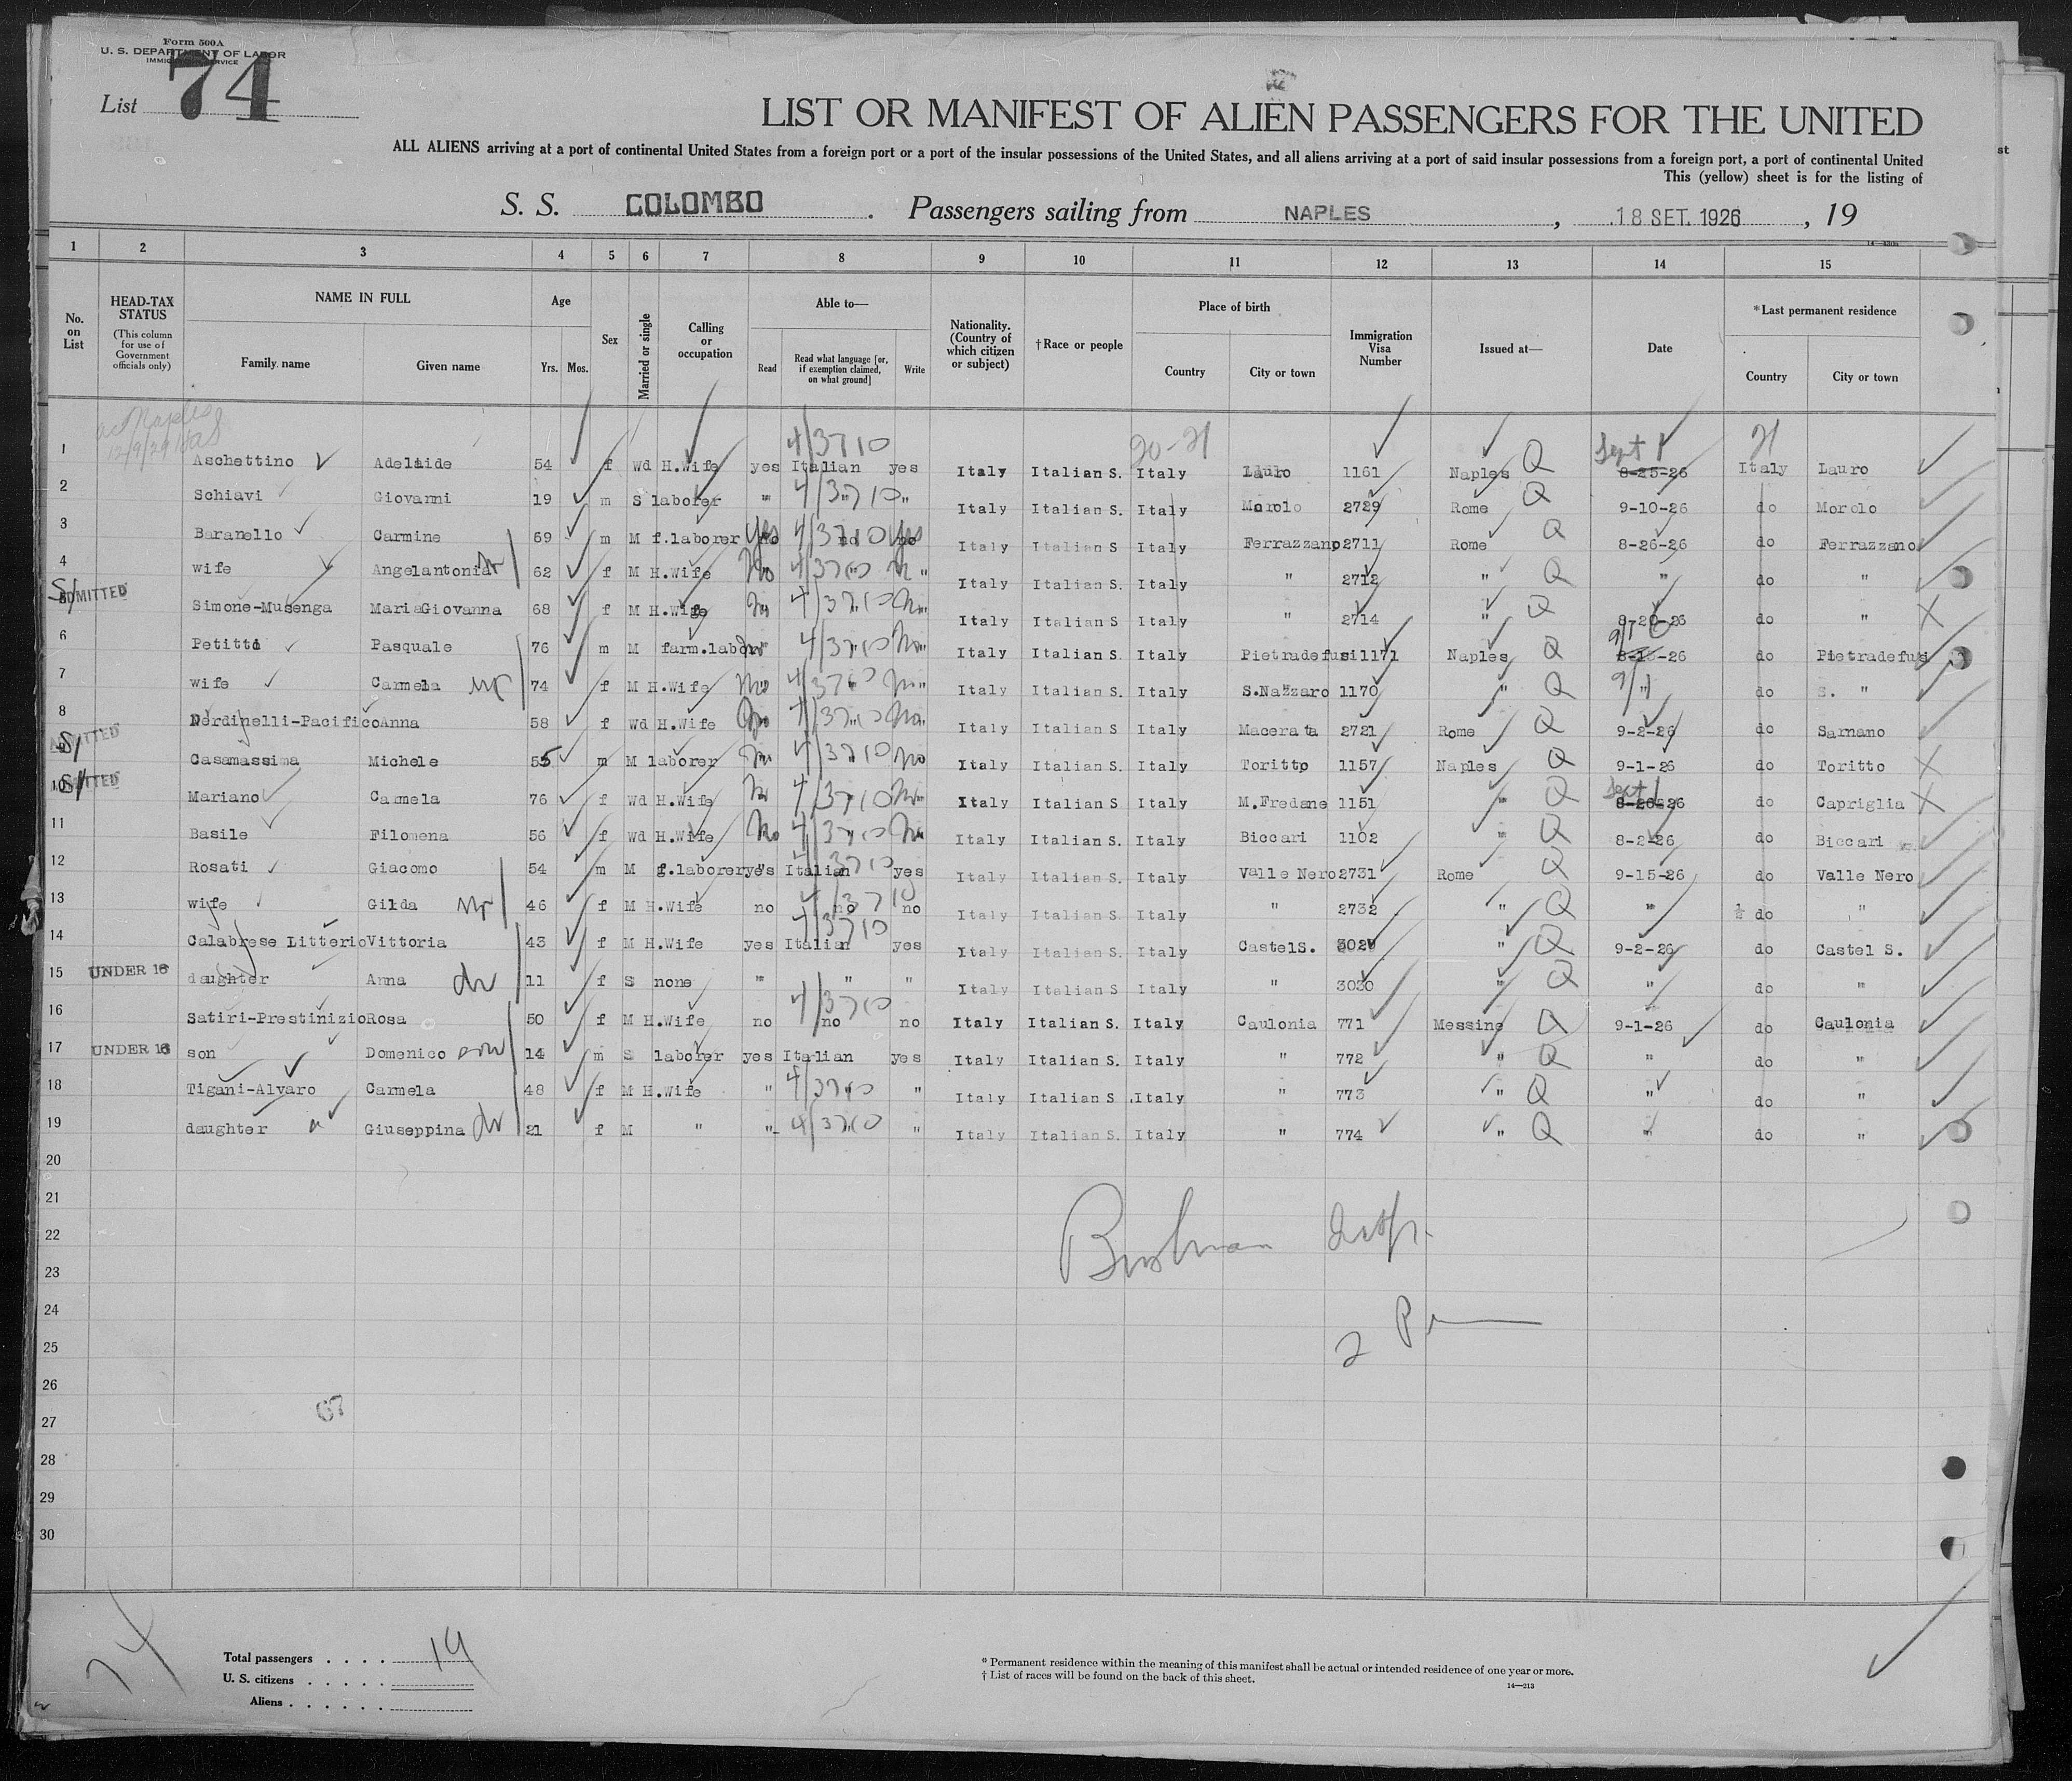 Form 500A
U. S. DEPARTMENT OF LABOR
IMMIGRATION SERVICE
List 74
LIST OR MANIFEST OF ALIEN PASSENGERS FOR THE UNITED
ALL ALIENS arriving at a port of continental United States from a foreign port or a port of the insular possessions of the United States, and all aliens arriving at a port of said insular possessions from a foreign port, a port of continental United
This (yellow) sheet is for the listing of
S. S. COLOMBO. Passengers sailing from NAPLES, 18 SET. 1926, 19
1 2 3 4 5 6 7 8 9 10 11 12 13 14 15
No. on List
HEAD-TAX STATUS
(This column for use of Government officials only)
NAME IN FULL
Family name Given name
Age
Yrs. Mos.
Sex
Married or single
Calling or occupation
Able to—
Read Read what language [or, if exemption claimed, on what ground] Write
Nationality. (Country of which citizen or subject)
†Race or people
Place of birth
Country City or town
Immigration Visa Number
Issued at—
Date
*Last permanent residence
Country City or town
4/3710 20-21 Sept 1 21
1 Aschettino Adelaide 54 f Wd H.Wife yes Italian yes Italy Italian S. Italy Lauro 1161 Naples Q 8-25-26 Italy Lauro
2 Schiavi Giovanni 19 m S laborer " 4/3710 " Italy Italian S. Italy Morolo 2729 Rome Q 9-10-26 do Morolo
3 Baranello Carmine 69 m M f.laborer Yes 4/3710 Yes Italy Italian S Italy Ferrazzano 2711 Rome Q 8-26-26 do Ferrazzano
4 wife Angelantonia 62 f M H.Wife No 4/3710 " Italy Italian S. Italy " 2712 " Q " do "
ADMITTED Simone-Musenga MariaGiovanna 68 f M H.Wife No 4/3710 No Italy Italian S Italy " 2714 " Q 8-20-26 do " X
6 Petitto Pasquale 76 m M farm.labor 4/3710 No Italy Italian S. Italy Pietradefusi 1171 Naples Q 8-18-26 do Pietradefusi
7 wife Carmela 74 f M H.Wife No 4/3710 No Italy Italian S. Italy S.Nazzaro 1170 " Q 9/1 do S. "
8 Nardinelli-Pacifico Anna 58 f Wd H.Wife No 4/3710 No Italy Italian S Italy Macerata 2721 Rome Q 9-2-26 do Sarnano
ADMITTED Casamassima Michele 55 m M laborer No 4/3710 No Italy Italian S. Italy Toritto 1157 Naples Q 9-1-26 do Toritto X
10 ADMITTED Mariano Carmela 76 f Wd H.Wife No 4/3710 No Italy Italian S Italy M.Fredane 1151 " Q Sept 1 8-26-26 do Capriglia X
11 Basile Filomena 56 f Wd H.Wife No 4/3710 No Italy Italian S. Italy Biccari 1102 " Q 8-2-26 do Biccari
12 Rosati Giacomo 54 m M f.laborer yes Italian 4/3710 yes Italy Italian S. Italy Valle Nero 2731 Rome Q 9-15-26 do Valle Nero
13 wife Gilda 46 f M H.Wife no no 4/3710 no Italy Italian S. Italy " 2732 " Q " do "
14 Calabrese Litterio Vittoria 43 f M H.Wife yes Italian 4/3710 yes Italy Italian S. Italy Castel S. 3029 " Q 9-2-26 do Castel S.
15 UNDER 16 daughter Anna 11 f S none " " " Italy Italian S Italy " 3030 " Q " do "
16 Satiri-Prestinizio Rosa 50 f M H.Wife no 4/3710 no no Italy Italian S. Italy Caulonia 771 Messina Q 9-1-26 do Caulonia
17 UNDER 16 son Domenico 14 m S laborer yes Italian yes Italy Italian S. Italy " 772 " Q " do "
18 Tigani-Alvaro Carmela 48 f M H.Wife " 4/3710 " Italy Italian S. Italy " 773 " Q " do "
19 daughter Giuseppina 21 f M " " 4/3710 " Italy Italian S. Italy " 774 " Q " do "
20
21
22
23
24
25
26
27
28
29
30
2
67
74
Total passengers 19
U. S. citizens
Aliens
* Permanent residence within the meaning of this manifest shall be actual or intended residence of one year or more.
† List of races will be found on the back of this sheet.
14—213